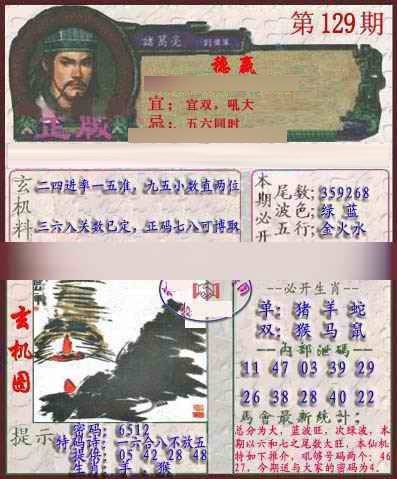 第129期
諸葛亮
稳赢
宜；宜双，吼大
忌；五六同时
正版
玄机料
二四进率一五准，九五小数直两位
三六八关数已定，正码七八可博取
本期必开
尾数；359268
波色；绿 蓝
五行；金火水
玄机图
--必开生肖--
单：猪 羊 蛇
双：猴 马 鼠
--内部泄码--
11 47 03 39 29
26 38 28 40 22
馬會最新统计：
总分为大，蓝波旺，次绿波，本期以六和七之尾数大旺，本仙机特如下推介，吼够号码两个：4627，今期送与大家的密码为4.
提示
密码：6512
特码诗：一六合八不放五
提倍：05 42 28 48
生肖：羊、猴